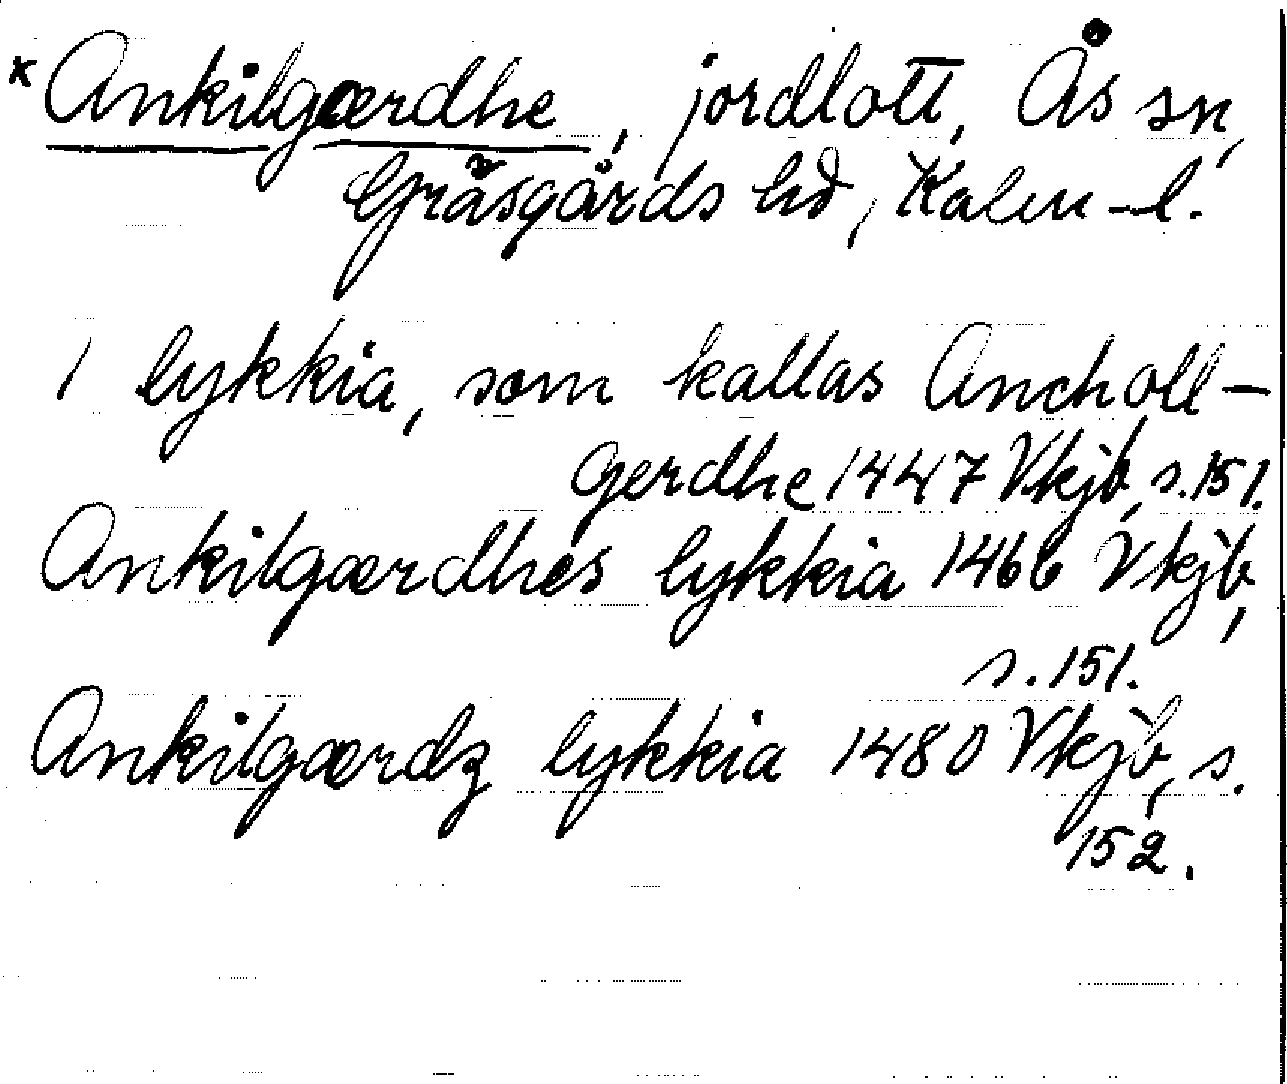 × Ankilgærdhe, jordlott, Ås sn,
Gräsgårds hd, Kalm-l.
1 lykkia, som kallas Ancholl-
gerdhe 1447 Vkjb, s.151.
Ankilgærdhes lykkia 1466 Vkjb,
s.151.
Ankilgærdz lykkia 1480 Vkjb, s.
152.